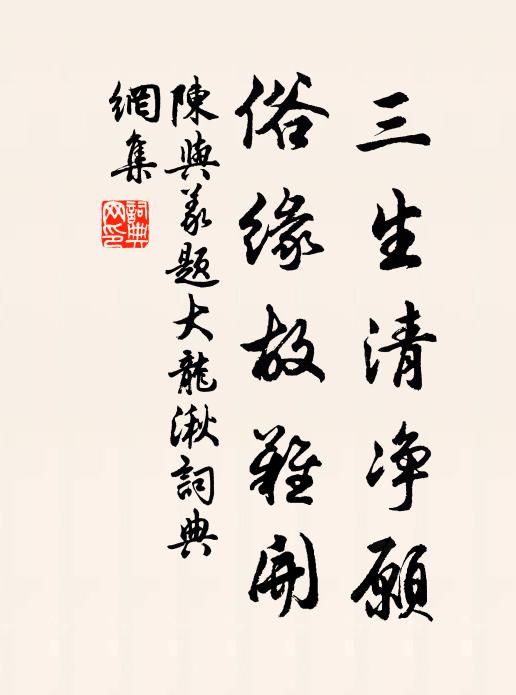 三生清净願
俗緣故難開
陳與義題大龍湫詞典
網集
詞典
网印